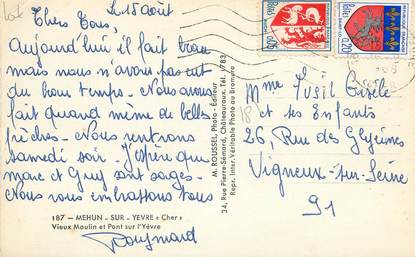 Le 15 août
Chers Tous,
Aujourd'hui il fait beau
mais nous n'avons pas eut
du beau temps. Nous avons
fait quand même de belles
pêches. Nous rentrons
samedi soir. J'espère que
marc et Guy sont sages.
Nous vous embrassons tous
187 - MEHUN - SUR - YEVRE « Cher »
Vieux Moulin et Pont sur l'Yèvre
M. ROUSSEL, Photo - Éditeur
34, Rue Pierre-Sémard, Châteauroux. Tél. 0783
Repr. Inter. Véritable Photo au Bromure
0,05
0,20
Mme Gisèle
et ses Enfants
26, Rue des Glycines
Vigneux-sur-Seine
91